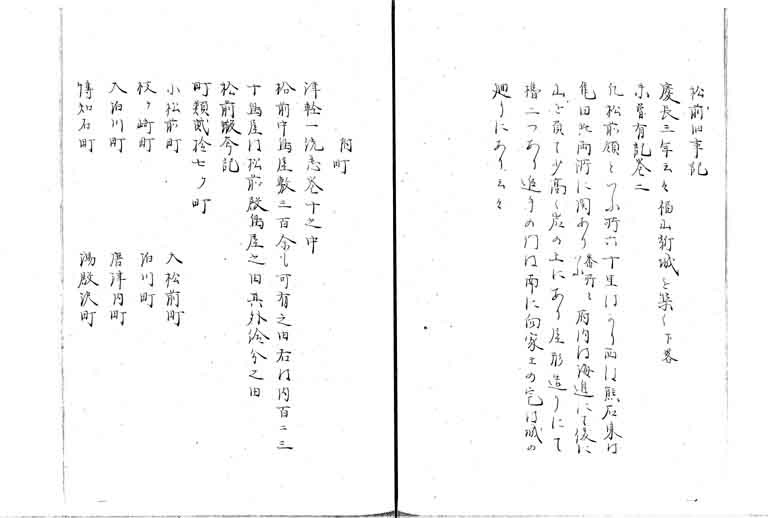 松前旧事記
慶長三年云々福山新城を築く下畧
東蝦有記巻二
凡松前領といふ所六十里はかり西は熊石東は
亀田此両所に関あり番所といふ府内は海辺にて後に
山を負て少高く岩の上にあり屋形造りにて
櫓二つあり追手の門は南に向家士の宅は城の
廻りにあり云々
府町
津軽一統志巻十之中
松前中島屋敷三百余も可有之由右は内百二三
十島屋は松前殿島屋之由其外給分之由
松前蝦夷記
町類弐拾七ケ町
小松前町 大松前町
枝ケ崎町 泊川町
大泊川町 唐津内町
博知石町 湯殿沢町